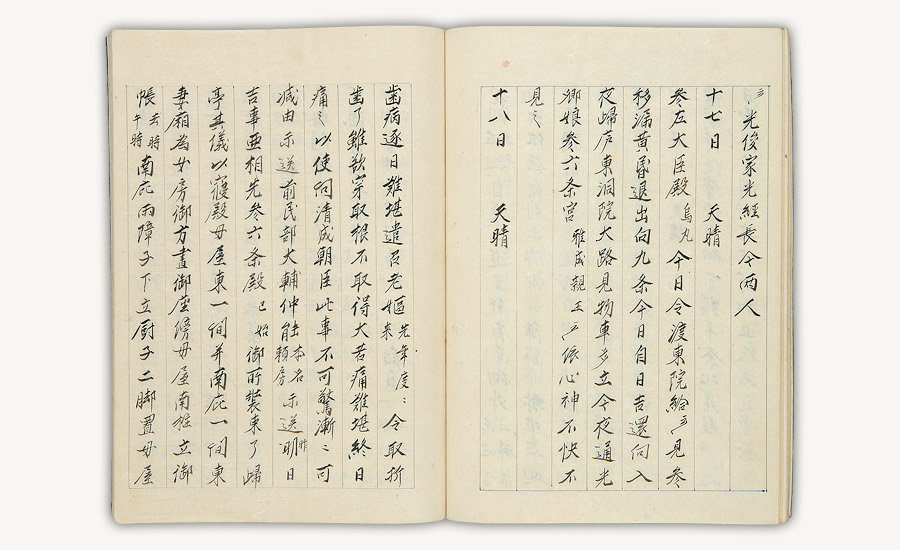 云々光俊家光経長今両人
十七日　天晴
参左大臣殿烏丸今日令渡東院給云々見参
移漏黄昏退出向九条今日自日吉還向入
夜帰庐東洞院大路見物車多立今夜通光
卿娘参六条宮雅成親王云々依心神不快不
見之
十八日　天晴
歯病逐日難堪遣召老嫗先年度々来令取折
歯了雖欲穿取根不取得大苦痛難堪終日
痛之以使問清成朝臣此事不可驚漸々可
減由示送前民部大輔仲能本名頼房示送明日昨
吉事亜相先参六条殿已始御所装束了帰
亭其儀以寝殿母屋東一間并南庇一間東
妻廂為女房御方昼御座傍母屋南柱立御
帳去時午時南庇両障子下立厨子二脚置母屋